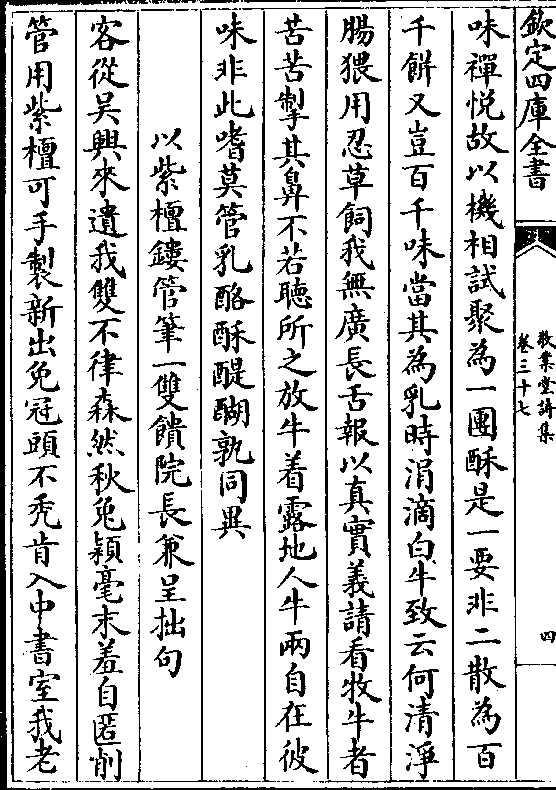 欽定四庫全書
敬業堂詩集
卷三十七
四
味禪悅故以機相試聚為一團酥是一要非二散為百
千餅又豈百千味當其為乳時涓滴白牛致云何清淨
腸猥用忍草飼我無廣長舌報以真實義請看牧牛者
苦苦掣其鼻不若聽所之放牛着露地人牛兩自在彼
味非此嗜莫管乳酪酥醍醐孰同異
以紫檀鏤管筆一雙饋院長兼呈拙句
客從吴興來遺我雙不律森然秋兔穎毫末羞自匿削
管用紫檀可手製新出免冠頭不禿肯入中書室我老